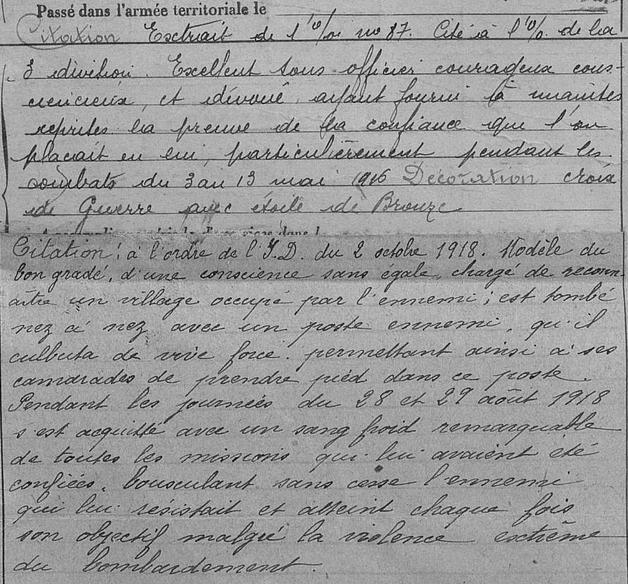 Passé dans l'armée territoriale le
Citation Exctrait de l'O/o no 87. Cité à l'O/o de la
3 division. Excellent sous officier courageux cons-
ciencieux, et dévoué, ayant fourni à maintes
reprises la preuve de la confiance que l'on
plaçait en lui, particulièrement pendant les
combats du 3 au 13 mai 1916 Décoration croix
de Guerre avec étoile de Bronze
Citation: à l'ordre de l'I.D. du 2 octobre 1918. Modèle du
bon gradé, d'une conscience sans égale, chargé de reconn-
aître un village occupé par l'ennemi; est tombé
nez à nez avec un poste ennemi, qu'il
culbuta de vive force. permettant ainsi à ses
camarades de prendre pied dans ce poste.
Pendant les journées du 28 et 29 août 1918
s'est acquitté avec un sang froid remarquable
de toutes les missions qui lui avaient été
confiées, bousculant sans cesse l'ennemi
qui lui résistait et atteint chaque fois
son objectif malgré la violence extrême
du bombardement.